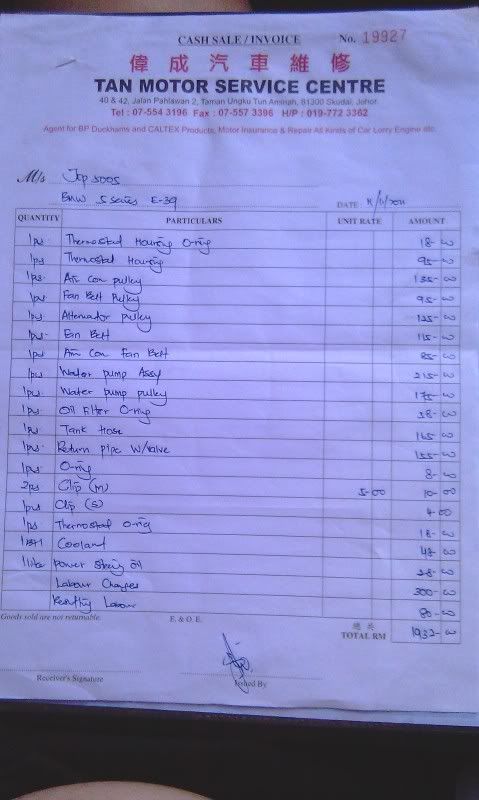 CASH SALE / INVOICE No. 19927
偉成汽車維修
TAN MOTOR SERVICE CENTRE
40 & 42, Jalan Pahlawan 2, Taman Ungku Tun Aminah, 81300 Skudai, Johor.
Tel : 07-554 3196 Fax : 07-557 3396 H/P : 019-772 3362
Agent for BP Duckhams and CALTEX Products, Motor Insurance & Repair All Kinds of Car Lorry Engine etc.
M/s JCP 5005
BMW 5 series E-39 DATE
QUANTITY PARTICULARS UNIT RATE AMOUNT
1pcs Thermostat Housing O-ring 18-00
1pcs Thermostat Housing 95-00
1pcs Air Con pulley 135-00
1pcs Fan Belt Pulley 95-00
1pcs pulley 125-00
1pcs Fan Belt 115-00
1pcs Air Con Fan Belt 85-00
1pcs Water pump Assy 215-00
1pcs Water pump pulley 175-00
1pcs Oil Filter O-ring 38-00
1pcs Tank Hose 165-00
1pcs Return pipe W/Valve 155-00
1pcs O-ring 8-00
2pcs Clip (m) 5-00 10-00
1pcs Clip (s) 4-00
1pcs Thermostat O-ring 18-00
Coolant 48-00
1 litre power string oil 28-00
Labour Charges 300-00
Labour 80-00
Goods sold are not returnable. E. & O. E. TOTAL RM 1932-00
Receiver's Signature Issued By